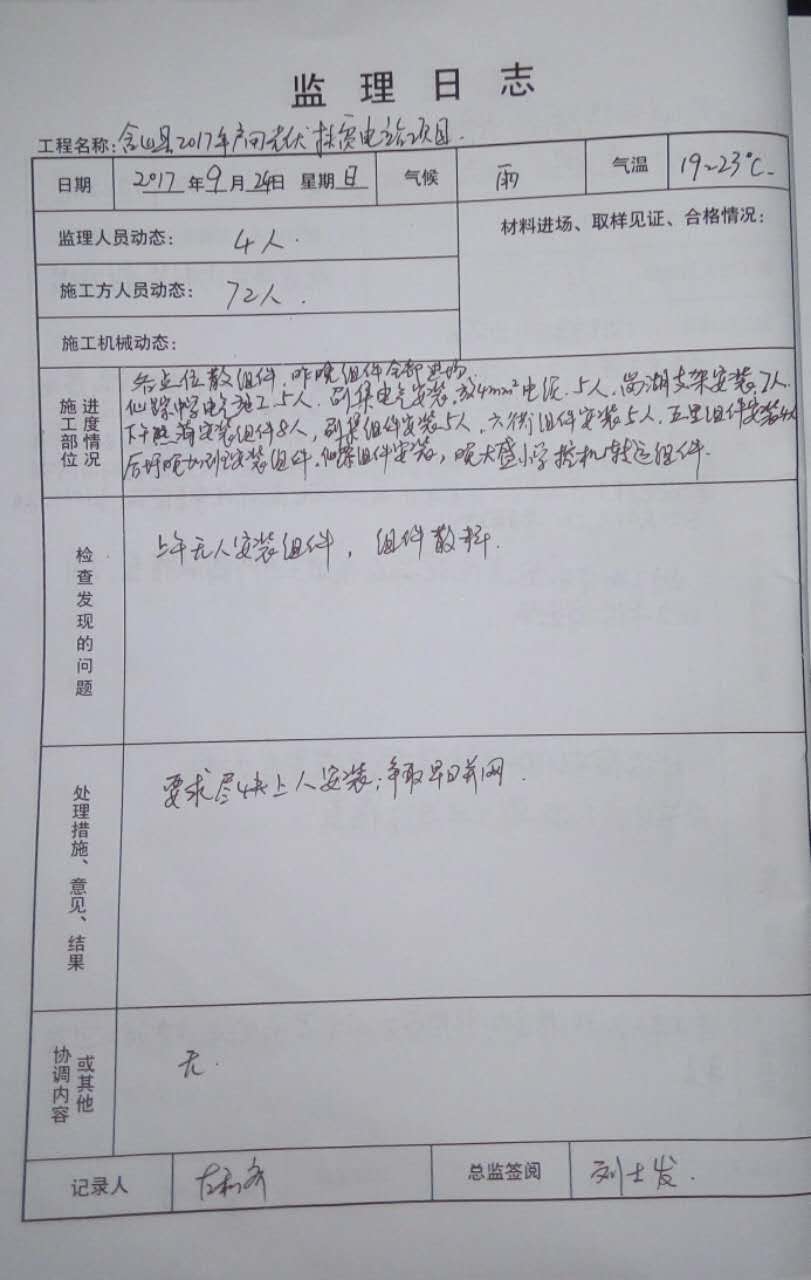 监理日志
工程名称:含山县2017年户用光伏扶贫电站项目.
日期 2017年9月24日 星期日 气候 雨 气温 19~23℃
监理人员动态: 4人. 材料进场、取样见证、合格情况:
施工方人员动态: 72人.
施工机械动态:
施工部位 进度情况
各点位散组件,昨晚组件全部进场.
仙踪中学电气施工5人. 电气安装,放4mm²电缆.5人,尚湖支架安装7人.
安装组件8人, 组件安装5人,六衖组件安装5人.五里组件安装4人
安装组件.仙踪组件安装,晚大盛小学挖机转运组件.
检查发现的问题
上午无人安装组件,组件散料.
处理措施、意见、结果
要求尽快上人安装,争取早日并网.
协调内容 或其他
无.
记录人 总监签阅 刘士发.